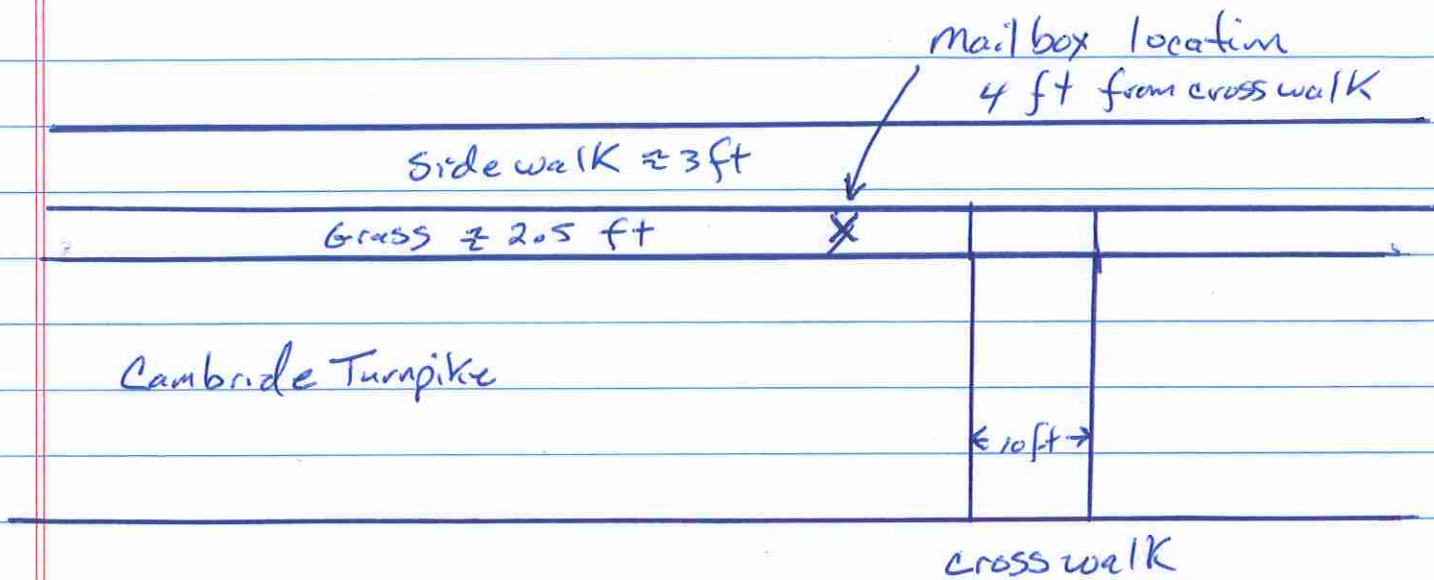 Mailbox location
4 ft from crosswalk
Sidewalk ≈ 3ft
Grass ≈ 2.5 ft
X
Cambride Turnpike
← 10ft →
crosswalk